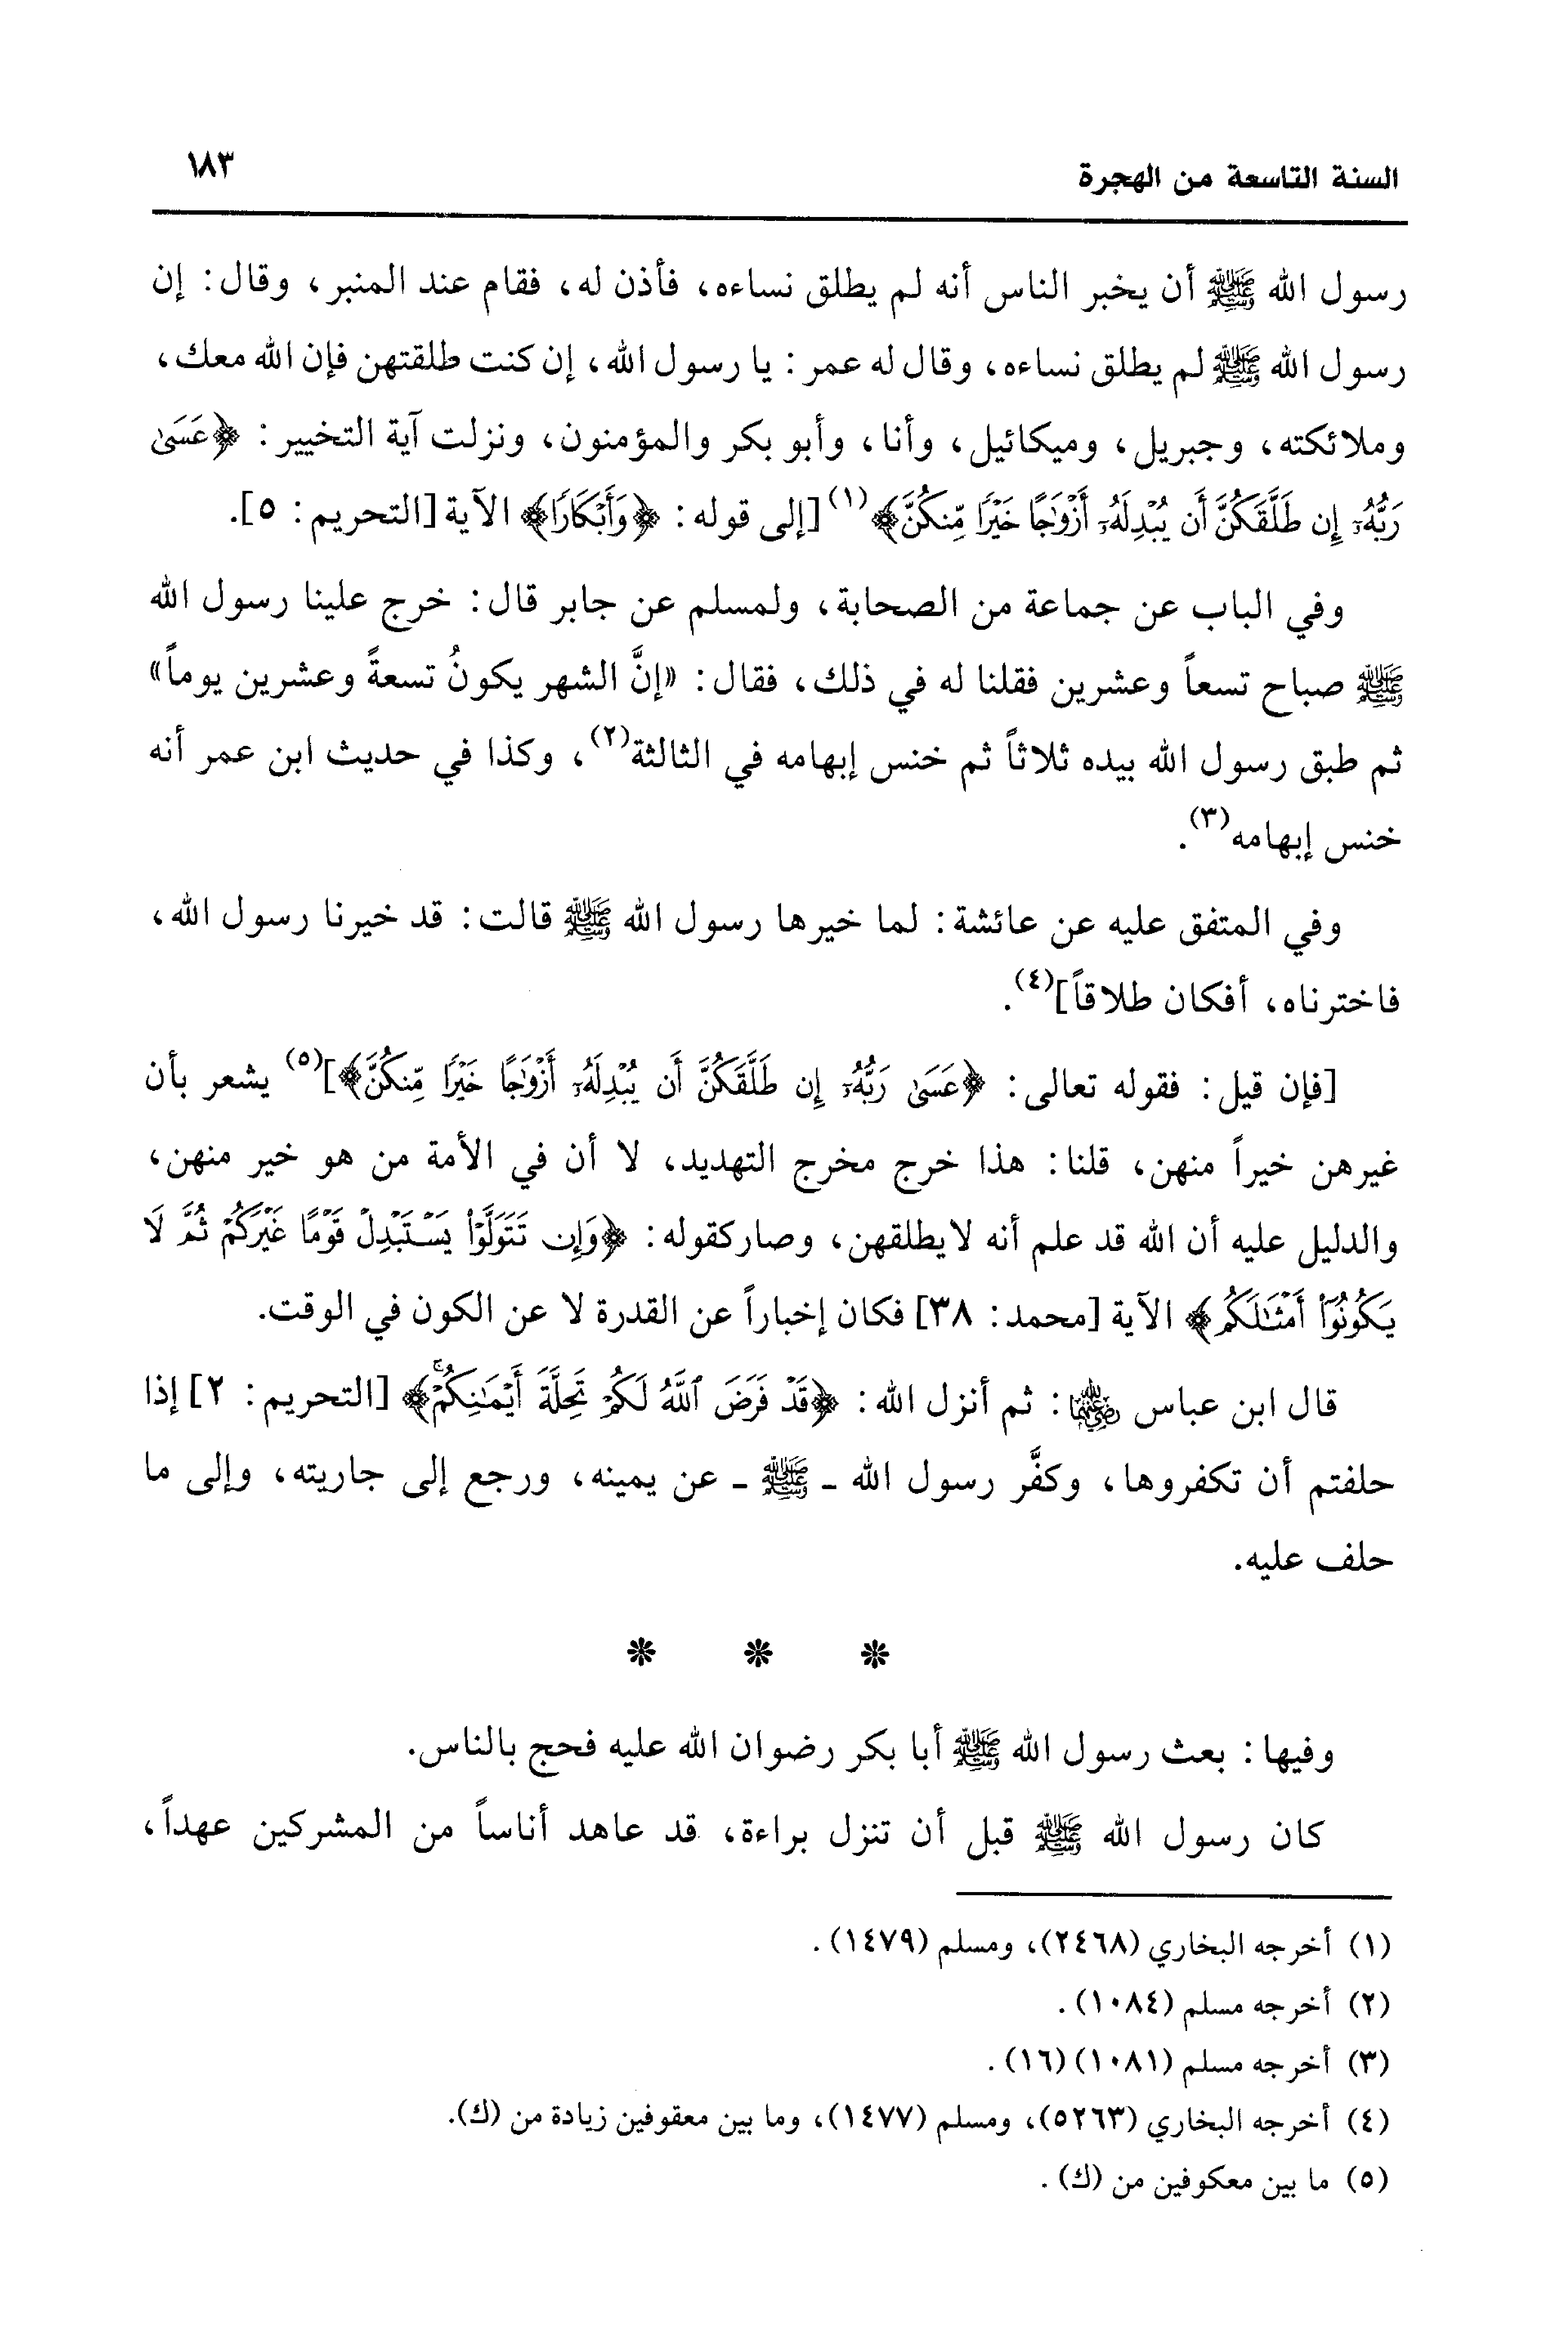 السنة التاسعة من الهجرة ١٨٣
رسول الله ﷺ أن يخبر الناس أنه لم يطلق نساءه، فأذن له، فقام عند المنبر، وقال: إن
رسول الله ﷺ لم يطلق نساءه، وقال له عمر: يا رسول الله، إن كنت طلقتهن فإن الله معك،
وملائكته، وجبريل، وميكائيل، وأنا، وأبو بكر والمؤمنون، ونزلت آية التخيير: ﴿عَسَىٰ
رَبُّهُۥٓ إِن طَلَّقَكُنَّ أَن يُبْدِلَهُۥٓ أَزْوَٰجًا خَيْرًا مِّنكُنَّ﴾(١) [إلى قوله: ﴿وَأَبْكَارًا﴾ الآية [التحريم: ٥].
وفي الباب عن جماعة من الصحابة، ولمسلم عن جابر قال: خرج علينا رسول الله
ﷺ صباح تسعاً وعشرين فقلنا له في ذلك، فقال: «إنَّ الشهر يكونُ تسعةً وعشرين يوماً»
ثم طبق رسول الله بيده ثلاثاً ثم خنس إبهامه في الثالثة(٢)، وكذا في حديث ابن عمر أنه
خنس إبهامه(٣).
وفي المتفق عليه عن عائشة: لما خيرها رسول الله ﷺ قالت: قد خيرنا رسول الله،
فاخترناه، أفكان طلاقاً](٤).
[فإن قيل: فقوله تعالى: ﴿عَسَىٰ رَبُّهُۥٓ إِن طَلَّقَكُنَّ أَن يُبْدِلَهُۥٓ أَزْوَٰجًا خَيْرًا مِّنكُنَّ﴾](٥) يشعر بأن
غيرهن خيراً منهن، قلنا: هذا خرج مخرج التهديد، لا أن في الأمة من هو خير منهن،
والدليل عليه أن الله قد علم أنه لا يطلقهن، وصار كقوله: ﴿وَإِن تَتَوَلَّوْا۟ يَسْتَبْدِلْ قَوْمًا غَيْرَكُمْ ثُمَّ لَا
يَكُونُوٓا۟ أَمْثَٰلَكُم﴾ الآية [محمد: ٣٨] فكان إخباراً عن القدرة لا عن الكون في الوقت.
قال ابن عباس رضي الله عنهما: ثم أنزل الله: ﴿قَدْ فَرَضَ ٱللَّهُ لَكُمْ تَحِلَّةَ أَيْمَٰنِكُمْۚ﴾ [التحريم: ٢] إذا
حلفتم أن تكفروها، وكفَّر رسول الله ـ ﷺ ـ عن يمينه، ورجع إلى جاريته، وإلى ما
حلف عليه.
* * *
وفيها: بعث رسول الله ﷺ أبا بكر رضوان الله عليه فحج بالناس.
كان رسول الله ﷺ قبل أن تنزل براءة، قد عاهد أناساً من المشركين عهداً،
(١) أخرجه البخاري (٢٤٦٨)، ومسلم (١٤٧٩).
(٢) أخرجه مسلم (١٠٨٤).
(٣) أخرجه مسلم (١٠٨١) (١٦).
(٤) أخرجه البخاري (٥٢٦٣)، ومسلم (١٤٧٧)، وما بين معقوفين زيادة من (ك).
(٥) ما بين معكوفين من (ك).